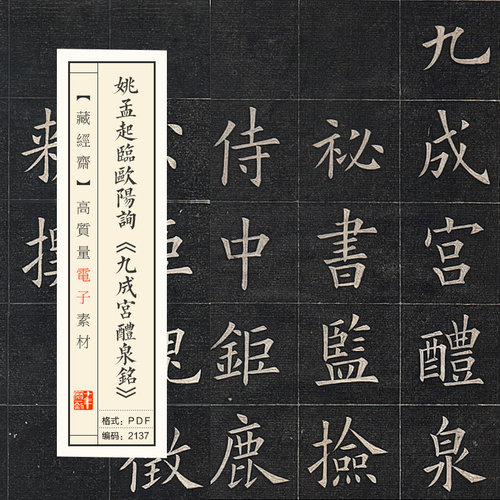 九成宮醴泉
祕書監撿
侍中鉅鹿
徵
姚孟起臨歐陽詢《九成宮醴泉銘》
【藏經齋】高質量電子素材
格式：PDF
编码：2137